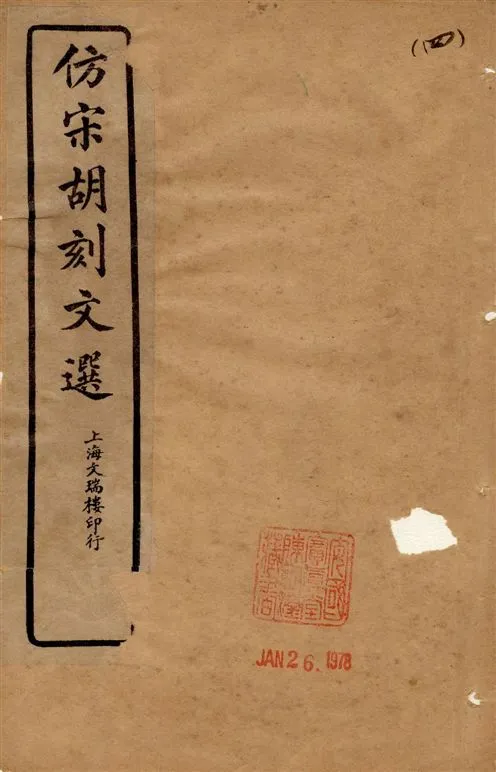 (四)
仿宋胡刻文選
上海文瑞樓印行
JAN 26. 1978